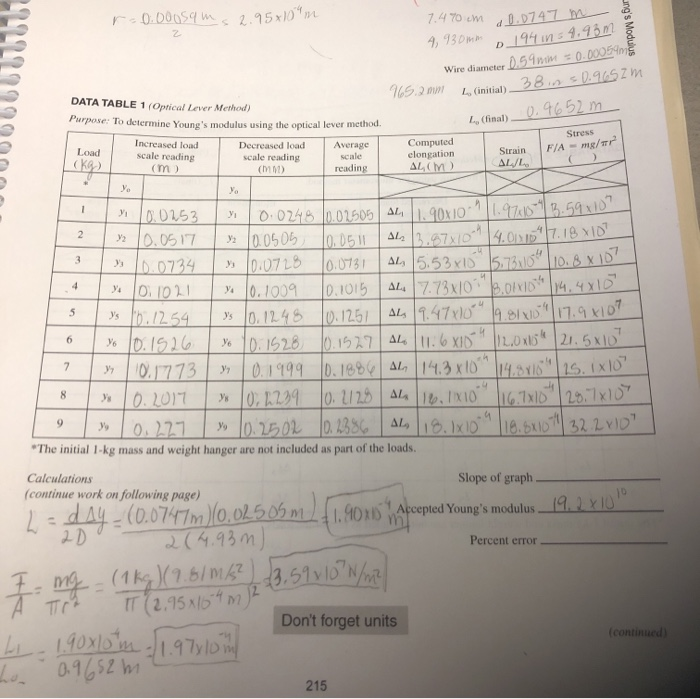 r = 0.00059 m / 2 = 2.95x10⁻⁴ m
7.470 cm d 0.0747 m
4,930 mm D 194 in = 4.93m
Wire diameter 0.59mm = 0.00059m
965.2 mm L₀ (initial) 38 in = 0.9652m
L₀ (final) 0.9652 m
ung's Modulus
DATA TABLE 1 (Optical Lever Method)
Purpose: To determine Young's modulus using the optical lever method.
Load (kg) Increased load scale reading (m) Decreased load scale reading (MM) Average scale reading Computed elongation ΔL (m) Strain ΔL/L₀ Stress F/A = mg/πr² ( )
* y₀ y₀
1 y₁ 0.0253 y₁ 0.0248 0.02505 ΔL₁ 1.90x10⁻⁴ 1.97x10⁻⁴ 3.59x10⁷
2 y₂ 0.0517 y₂ 0.0505 0.0511 ΔL₂ 3.87x10⁻⁴ 4.01x10⁻⁴ 7.18x10⁷
3 y₃ 0.0734 y₃ 0.0728 0.0731 ΔL₃ 5.53x10⁻⁴ 5.73x10⁻⁴ 10.8x10⁷
4 y₄ 0.1021 y₄ 0.1009 0.1015 ΔL₄ 7.73x10⁻⁴ 8.01x10⁻⁴ 14.4x10⁷
5 y₅ 0.1254 y₅ 0.1248 0.1251 ΔL₅ 9.47x10⁻⁴ 9.81x10⁻⁴ 17.9x10⁷
6 y₆ 0.1526 y₆ 0.1528 0.1527 ΔL₆ 11.6x10⁻⁴ 12.0x10⁻⁴ 21.5x10⁷
7 y₇ 0.1773 y₇ 0.1999 0.1886 ΔL₇ 14.3x10⁻⁴ 14.8x10⁻⁴ 25.1x10⁷
8 y₈ 0.2017 y₈ 0.2239 0.2128 ΔL₈ 16.1x10⁻⁴ 16.7x10⁻⁴ 28.7x10⁷
9 y₉ 0.227 y₉ 0.2502 0.2386 ΔL₉ 18.1x10⁻⁴ 18.8x10⁻⁴ 32.2x10⁷
*The initial 1-kg mass and weight hanger are not included as part of the loads.
Calculations
(continue work on following page)
Slope of graph
L = dΔy / 2D = (0.0747m)(0.02505m) / 2(4.93m) = 1.90x10⁻⁴ m
Accepted Young's modulus 19.2x10¹⁰
Percent error
F/A = mg / πr² = (1kg)(9.81m/s²) / π(2.95x10⁻⁴m)² = 3.59x10⁷N/m²
Don't forget units
L₁ / L₀ = 1.90x10⁻⁴m / 0.9652m = 1.97x10⁻⁴m
(continued)
215